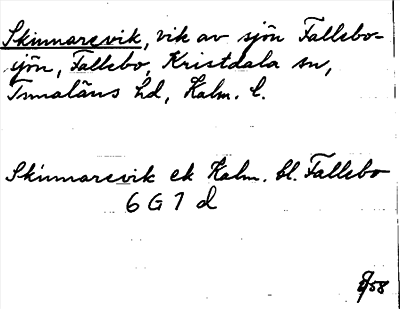 Skinnarevik, vik av sjön Fallebo-
sjön, Fallebo, Kristdala sn,
Tunaläns hd, Kalm. l.
Skinnarevik ek Kalm. bl. Fallebo
6 G 7 d
58